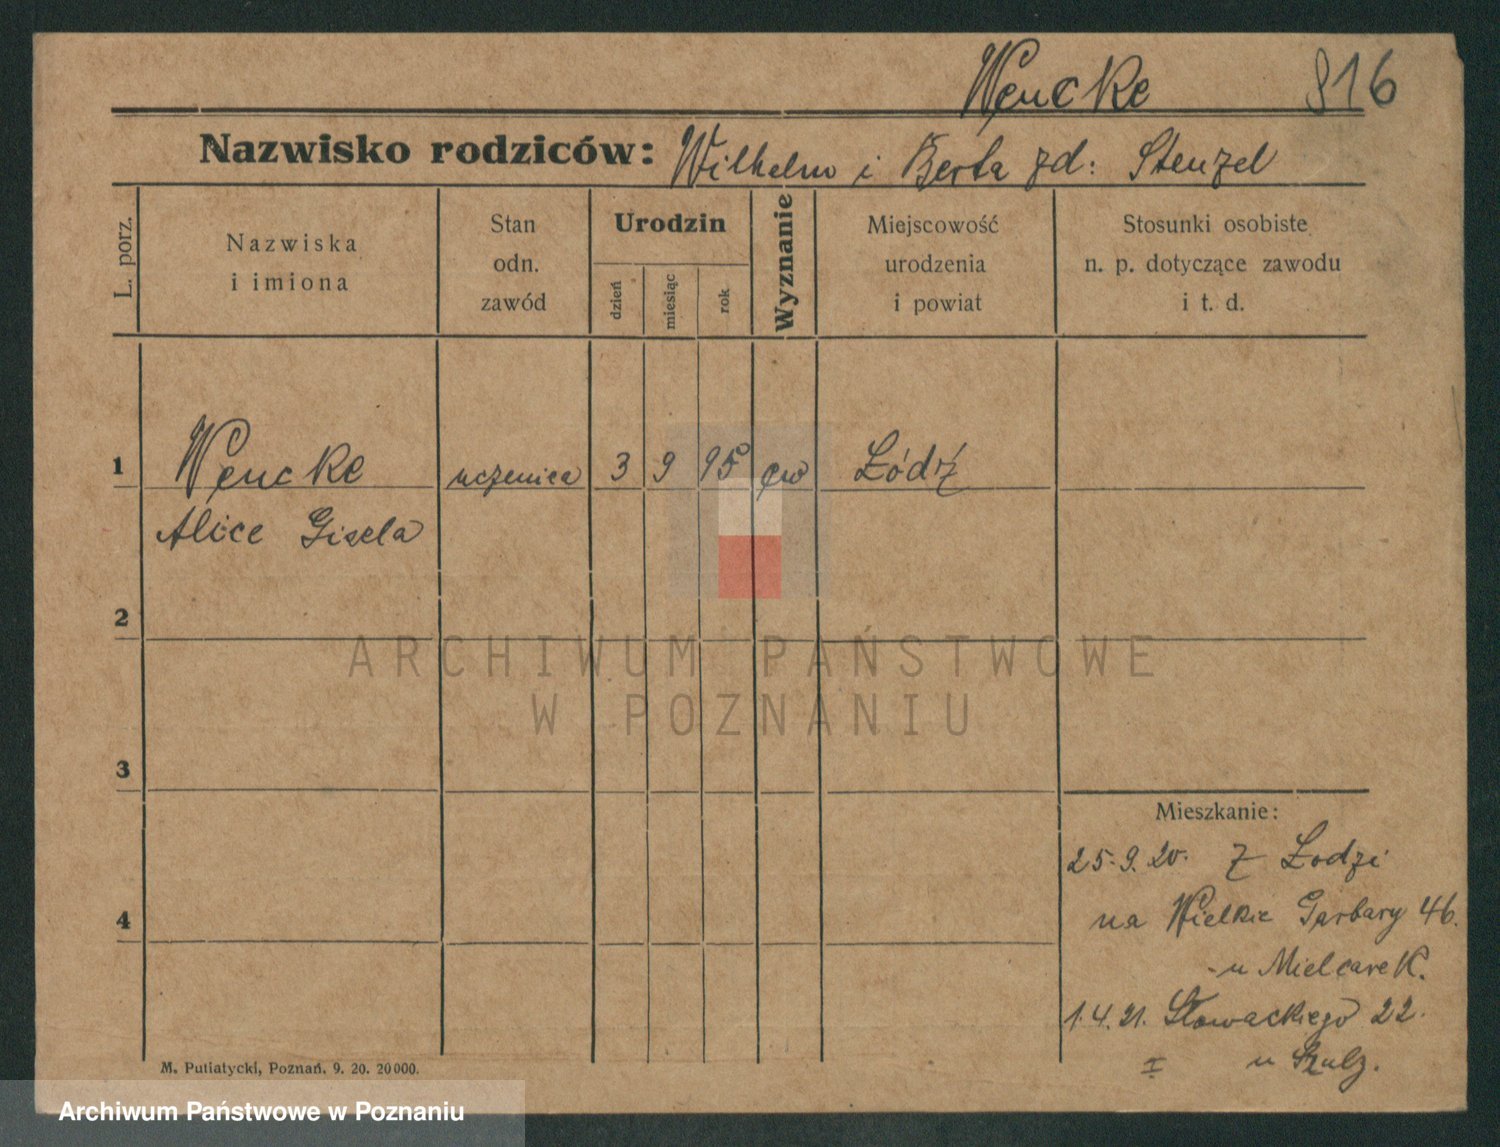 Wencke 816
Nazwisko rodziców: Wilhelm i Berta zd: Stenzel
L. porz.
Nazwiska
i imiona
Stan
odn.
zawód
Urodzin
dzień
miesiąc
rok
Wyznanie
Miejscowość
urodzenia
i powiat
Stosunki osobiste
n. p. dotyczące zawodu
i t. d.
1 Wencke uczenica 3 9 95 ew Łódź
Alice Gisela
2
3
4
Mieszkanie:
25.9.20. z Łodzi
na Wielkie Garbary 46.
u Mielcarek.
1.4.21. Słowackiego 22.
I u Szulz.
M. Putiatycki, Poznań. 9. 20. 20000.
ARCHIWUM PAŃSTWOWE
W POZNANIU
Archiwum Państwowe w Poznaniu